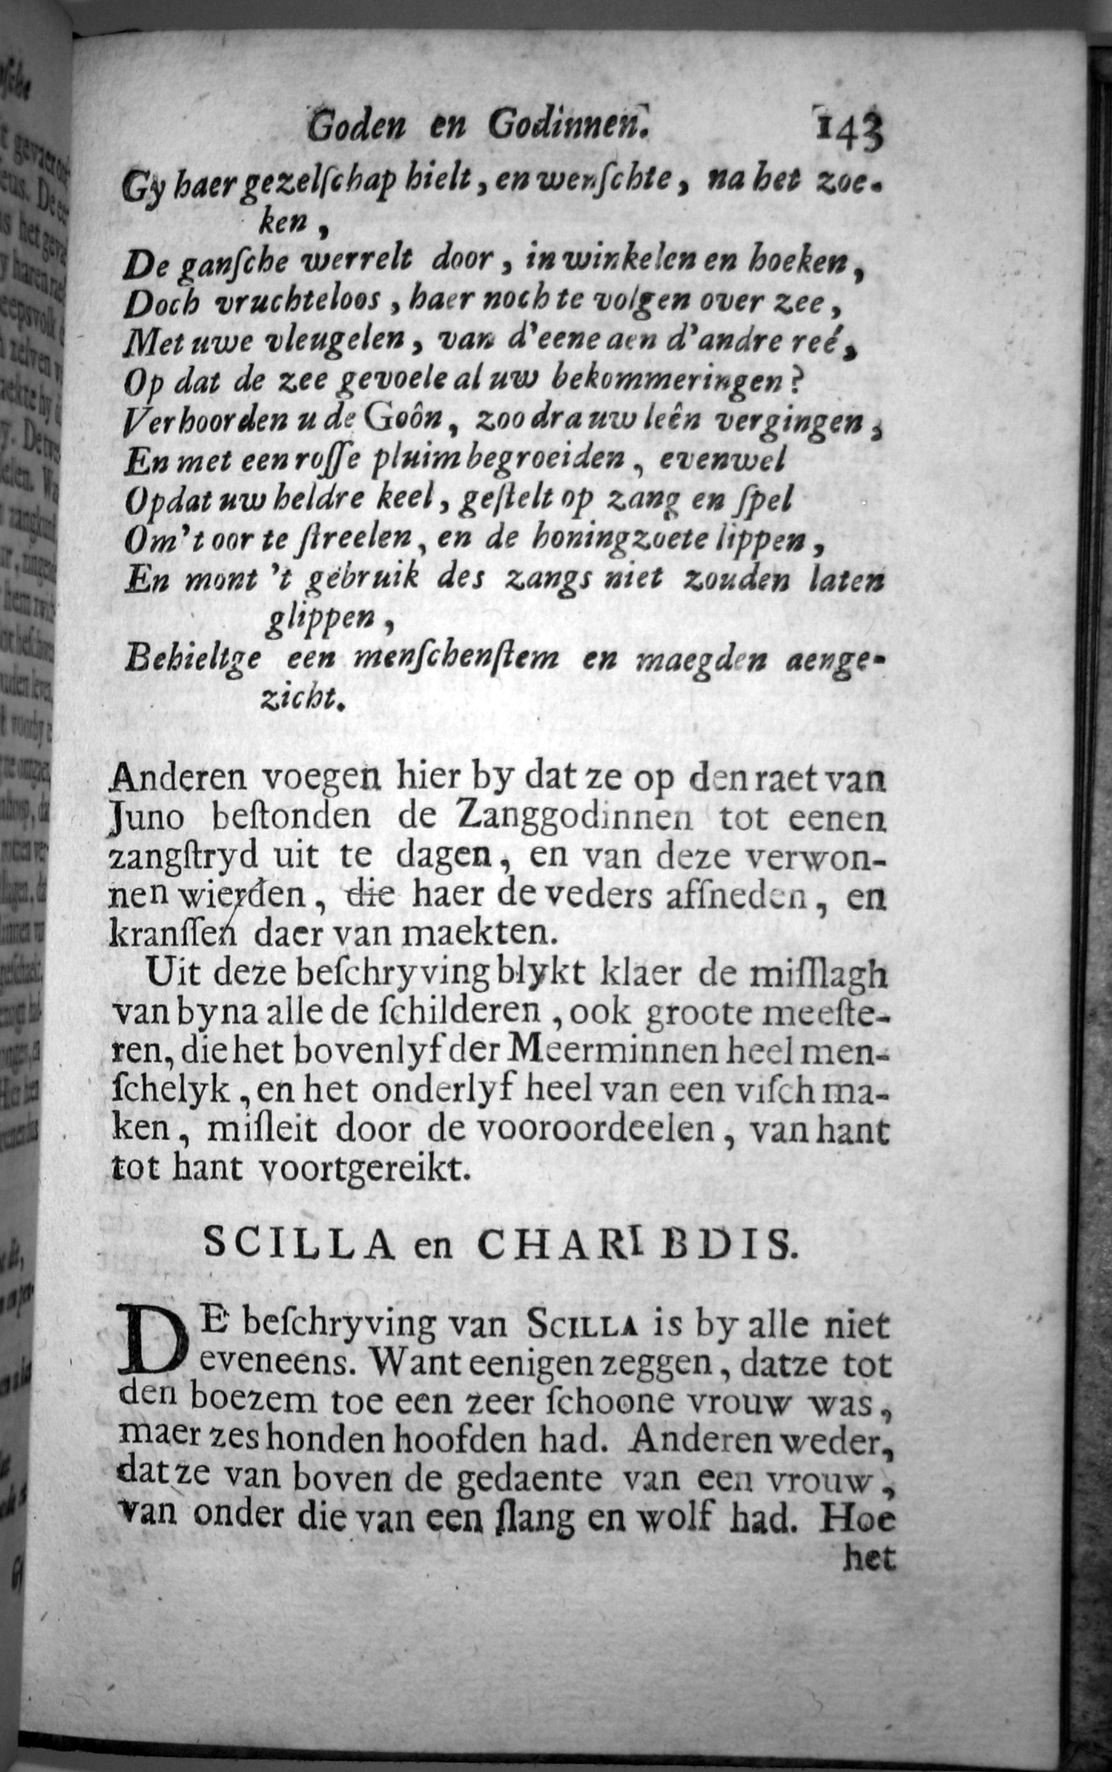 Goden en Godinnen. 143
Gy haer gezelſchap hielt, en wenſchte, na het zoe-
ken,
De ganſche werrelt door, in winkelen en hoeken,
Doch vruchteloos, haer noch te volgen over zee,
Met uwe vleugelen, van d'eene aen d'andre reé,
Op dat de zee gevoele al uw bekommeringen?
Verhoorden u de Goôn, zoo dra uw leên vergingen,
En met een roſſe pluim begroeiden, evenwel
Opdat uw heldre keel, geſtelt op zang en ſpel
Om't oor te ſtreelen, en de honingzoete lippen,
En mont 't gebruik des zangs niet zouden laten
glippen,
Behieltge een menſchenſtem en maegden aenge-
zicht.
Anderen voegen hier by dat ze op den raet van
Juno beſtonden de Zanggodinnen tot eenen
zangſtryd uit te dagen, en van deze verwon-
nen wierden, die haer de veders afſneden, en
kranſſen daer van maekten.
Uit deze beſchryving blykt klaer de miſſlagh
van byna alle de ſchilderen, ook groote meeſte-
ren, die het bovenlyf der Meerminnen heel men-
ſchelyk, en het onderlyf heel van een viſch ma-
ken, miſleit door de vooroordeelen, van hant
tot hant voortgereikt.
SCILLA en CHARIBDIS.
DE beſchryving van SCILLA is by alle niet
eveneens. Want eenigen zeggen, datze tot
den boezem toe een zeer ſchoone vrouw was,
maer zes honden hoofden had. Anderen weder,
dat ze van boven de gedaente van een vrouw,
van onder die van een ſlang en wolf had. Hoe
het